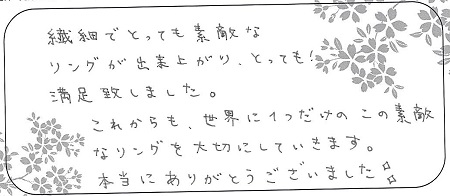 繊細でとっても素敵な
リングが出来上がり、とっても!
満足致しました。
これからも、世界に1つだけの この素敵
なリングを大切にしていきます。
本当にありがとうございました!!